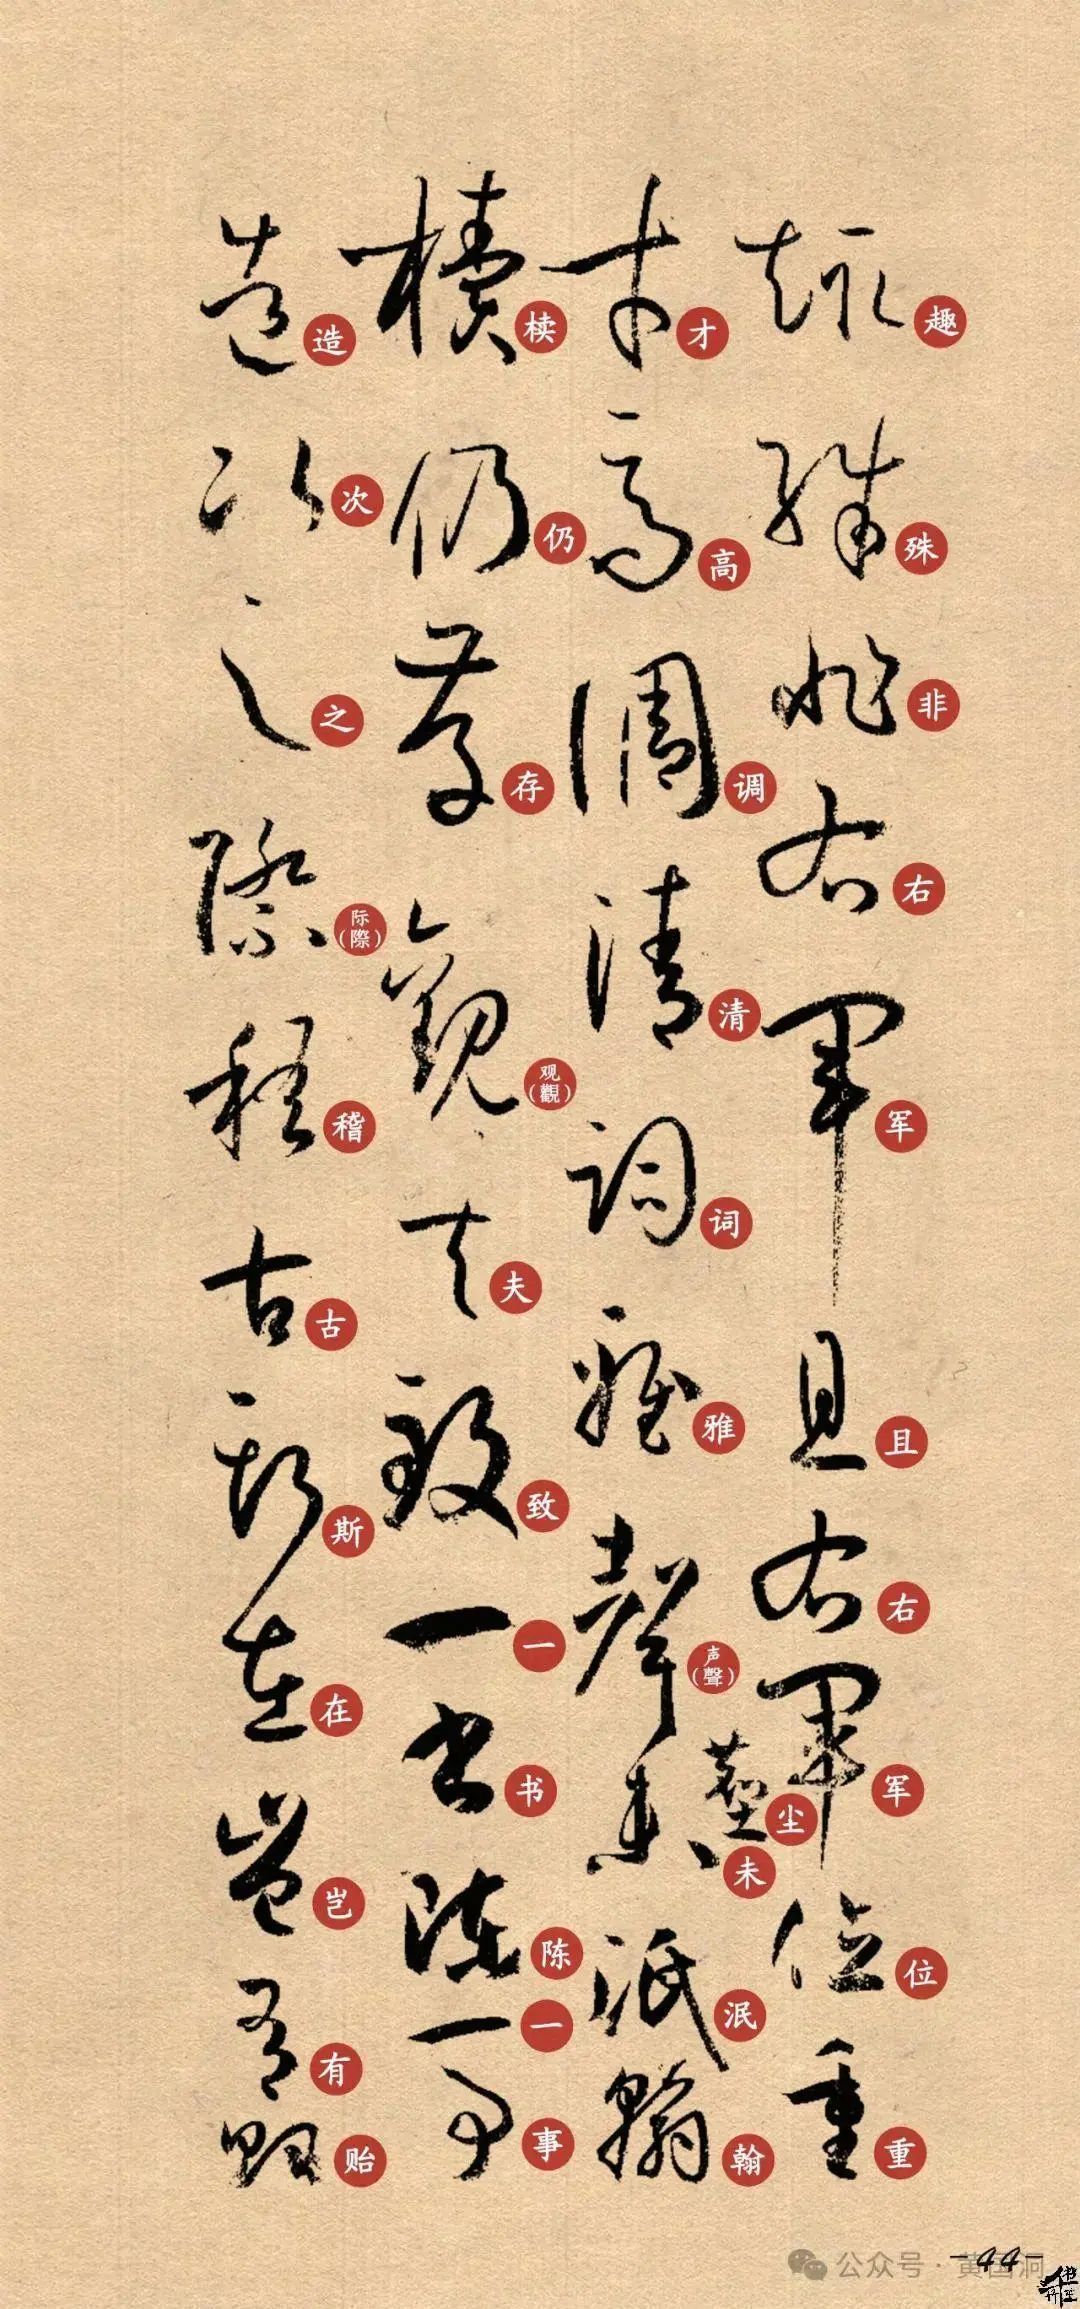 趣殊非右军且右军位重
才高调清词雅声(聲)尘未泯翰
椟仍存观(觀)夫致一书陈一事
造次之际(際)稽古斯在岂有贻
-44-
公众号 · 黄国洞